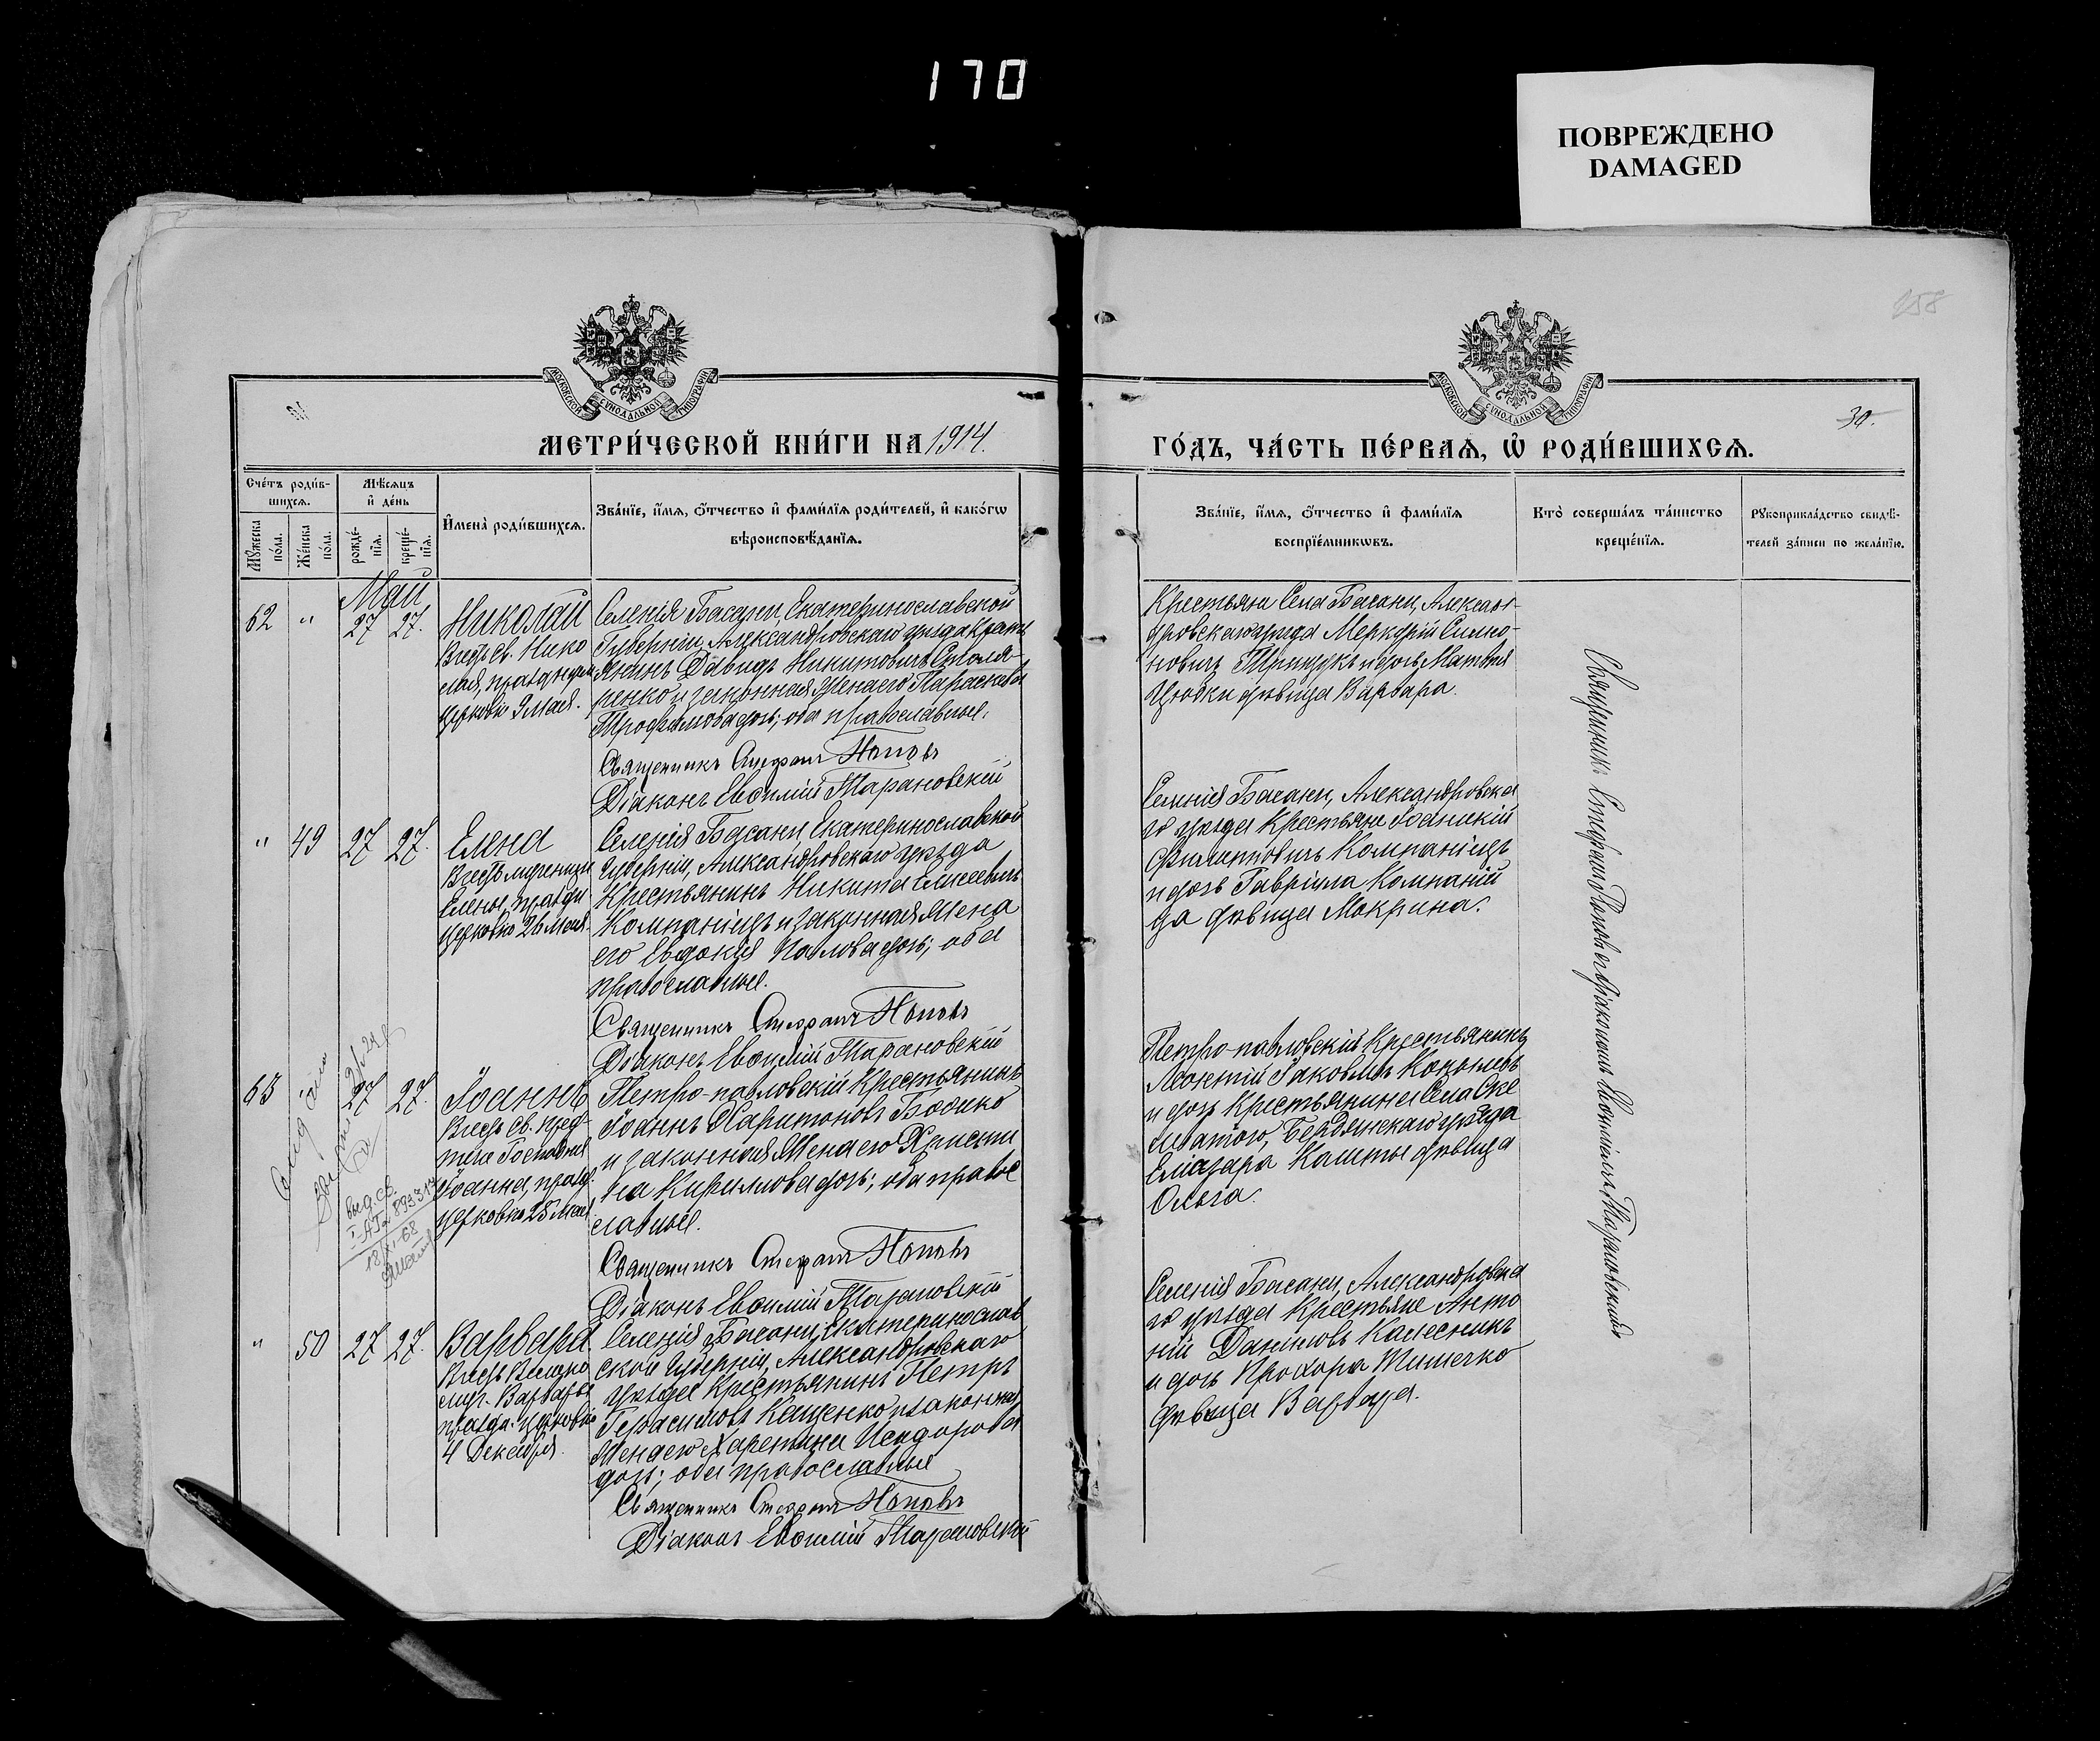 170
ПОВРЕЖДЕНО
DAMAGED
258
30.
МОСКОВСКОЙ СѴНОДАЛЬНОЙ ТИПОГРАФІИ
МОСКОВСКОЙ СѴНОДАЛЬНОЙ ТИПОГРАФІИ
МЕТРИ́ЧЕСКОЙ КНИ́ГИ НА 1914.
ГО́ДЪ, ЧА́СТЬ ПЕ́РВАѦ, Ѡ҆ РОДИ́ВШИХСѦ.
Сче́тъ роди́в-
шихсѧ.
Мꙋ́жеска по́ла.
Же́нска по́ла.
Мѣ́сѧцъ
и҆ де́нь
рожде́-
нїѧ.
креще́-
нїѧ.
И҆мена̀ роди́вшихсѧ.
Зва́нїе, и҆́мѧ, ѻ҆́тчество и҆ фами́лїѧ роди́телей, и҆ како́гѡ
вѣроисповѣ́данїѧ.
Зва́нїе, и҆́мѧ, ѻ҆́тчество и҆ фами́лїѧ
воспрїе́мникѡвъ.
Кто̀ соверша́лъ та́инство
креще́нїѧ.
Рꙋкоприкла́дство свидѣ́-
телей за́писи по жела́нїю.
Май
62 " 27 27.
Николай
Въ честь Св. Нико
лая, празднуем.
церковію 9 Мая.
Селенія Басани, Екатеринославской
Губерніи, Александровскаго уѣзда Кресть
янинъ Давидъ Никитовичъ Столя-
ренко и законная жена его Параскева
Трофимова дочь; оба православные.
Священникъ Стефанъ Поповъ
Діаконъ Евѳимій Тарановскій
Крестьяни Села Басани, Алексан-
дровскаго уѣзда Меркурій Симео-
новичъ Грицукъ и дочь Матѳея
Цюбки дѣвица Варвара.
" 49 27 27.
Елена
Въ честь мученицы
Елены, праздн.
церковію 26 Мая.
Селенія Басани Екатеринославской
Губерніи, Александровскаго уѣзда
Крестьянинъ Никита Елисеевичъ
Компаніецъ и законная жена
его Евдокія Павлова дочь; оба
православные.
Священникъ Стефанъ Поповъ
Діаконъ Евѳимій Тарановскій
Селенія Басани, Александровска
го уѣзда Крестьяне Іоаникій
Филипповичъ Компаніецъ
и дочь Гавріила Компаній
ца дѣвица Мокрина.
63 27 27.
Іоаннъ
Въ честь Св. Пред-
течи Господня
Іоанна, празд.
церковію 25 Мая
Петро-павловскій Крестьянинъ
Іоаннъ Харитоновъ Бобико
и законная жена его Христи
на Кириллова дочь; оба право
славные.
Священникъ Стефанъ Поповъ
Діаконъ Евѳимій Тарановскій
Петро-павловскій Крестьянинъ
Леонтій Іаковличъ
и дочь Крестьянина Села Спе
Бердянскаго уѣзда
Елиазара дѣвица
Ольга.
893317
18/XI-68
" 50 27 27.
Варвара.
Въ честь Велико
муч. Варвары
празд. церковію
4 Декабря.
Селенія Басани, Екатеринослав
ской Губерніи, Александровскаго
уѣзда Крестьянинъ Петръ
Герасимовъ Кащенко и законная
жена его Харетина Исидорова
дочь; оба православные
Священникъ Стефанъ Поповъ
Діаконъ Евѳимій Тарановскій
Селенія Басани, Александровска
го уѣзда Крестьяне Анто
ній Даніиловъ Колесникъ
и дочь Прохора Тимечко
дѣвица Варвара.
Священникъ Стефанъ Поповъ съ діакономъ Тарановскимъ